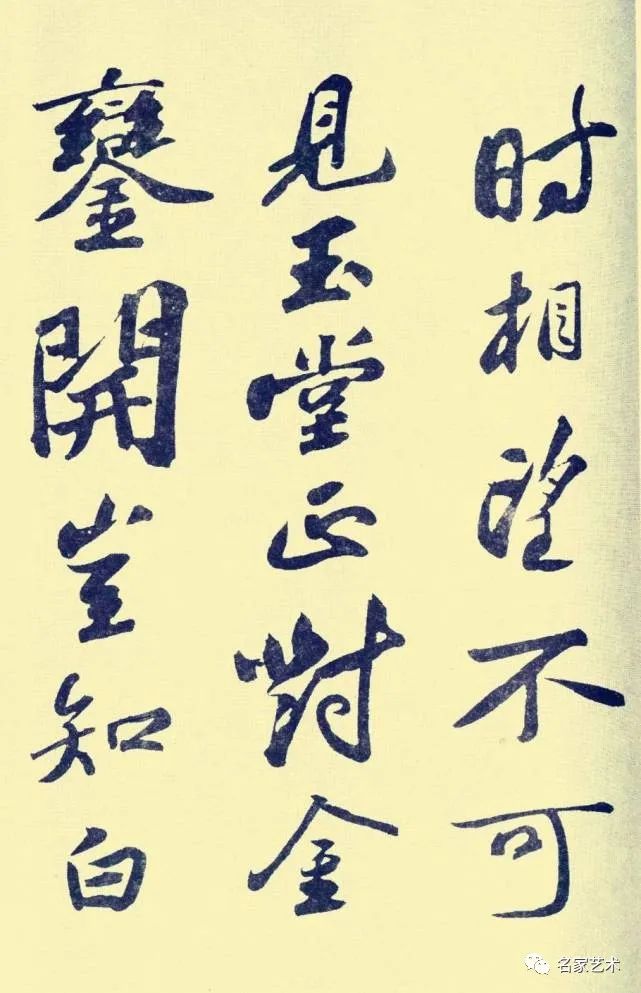 时相望不可
見玉堂正對金
鑾開豈知白
名家艺术